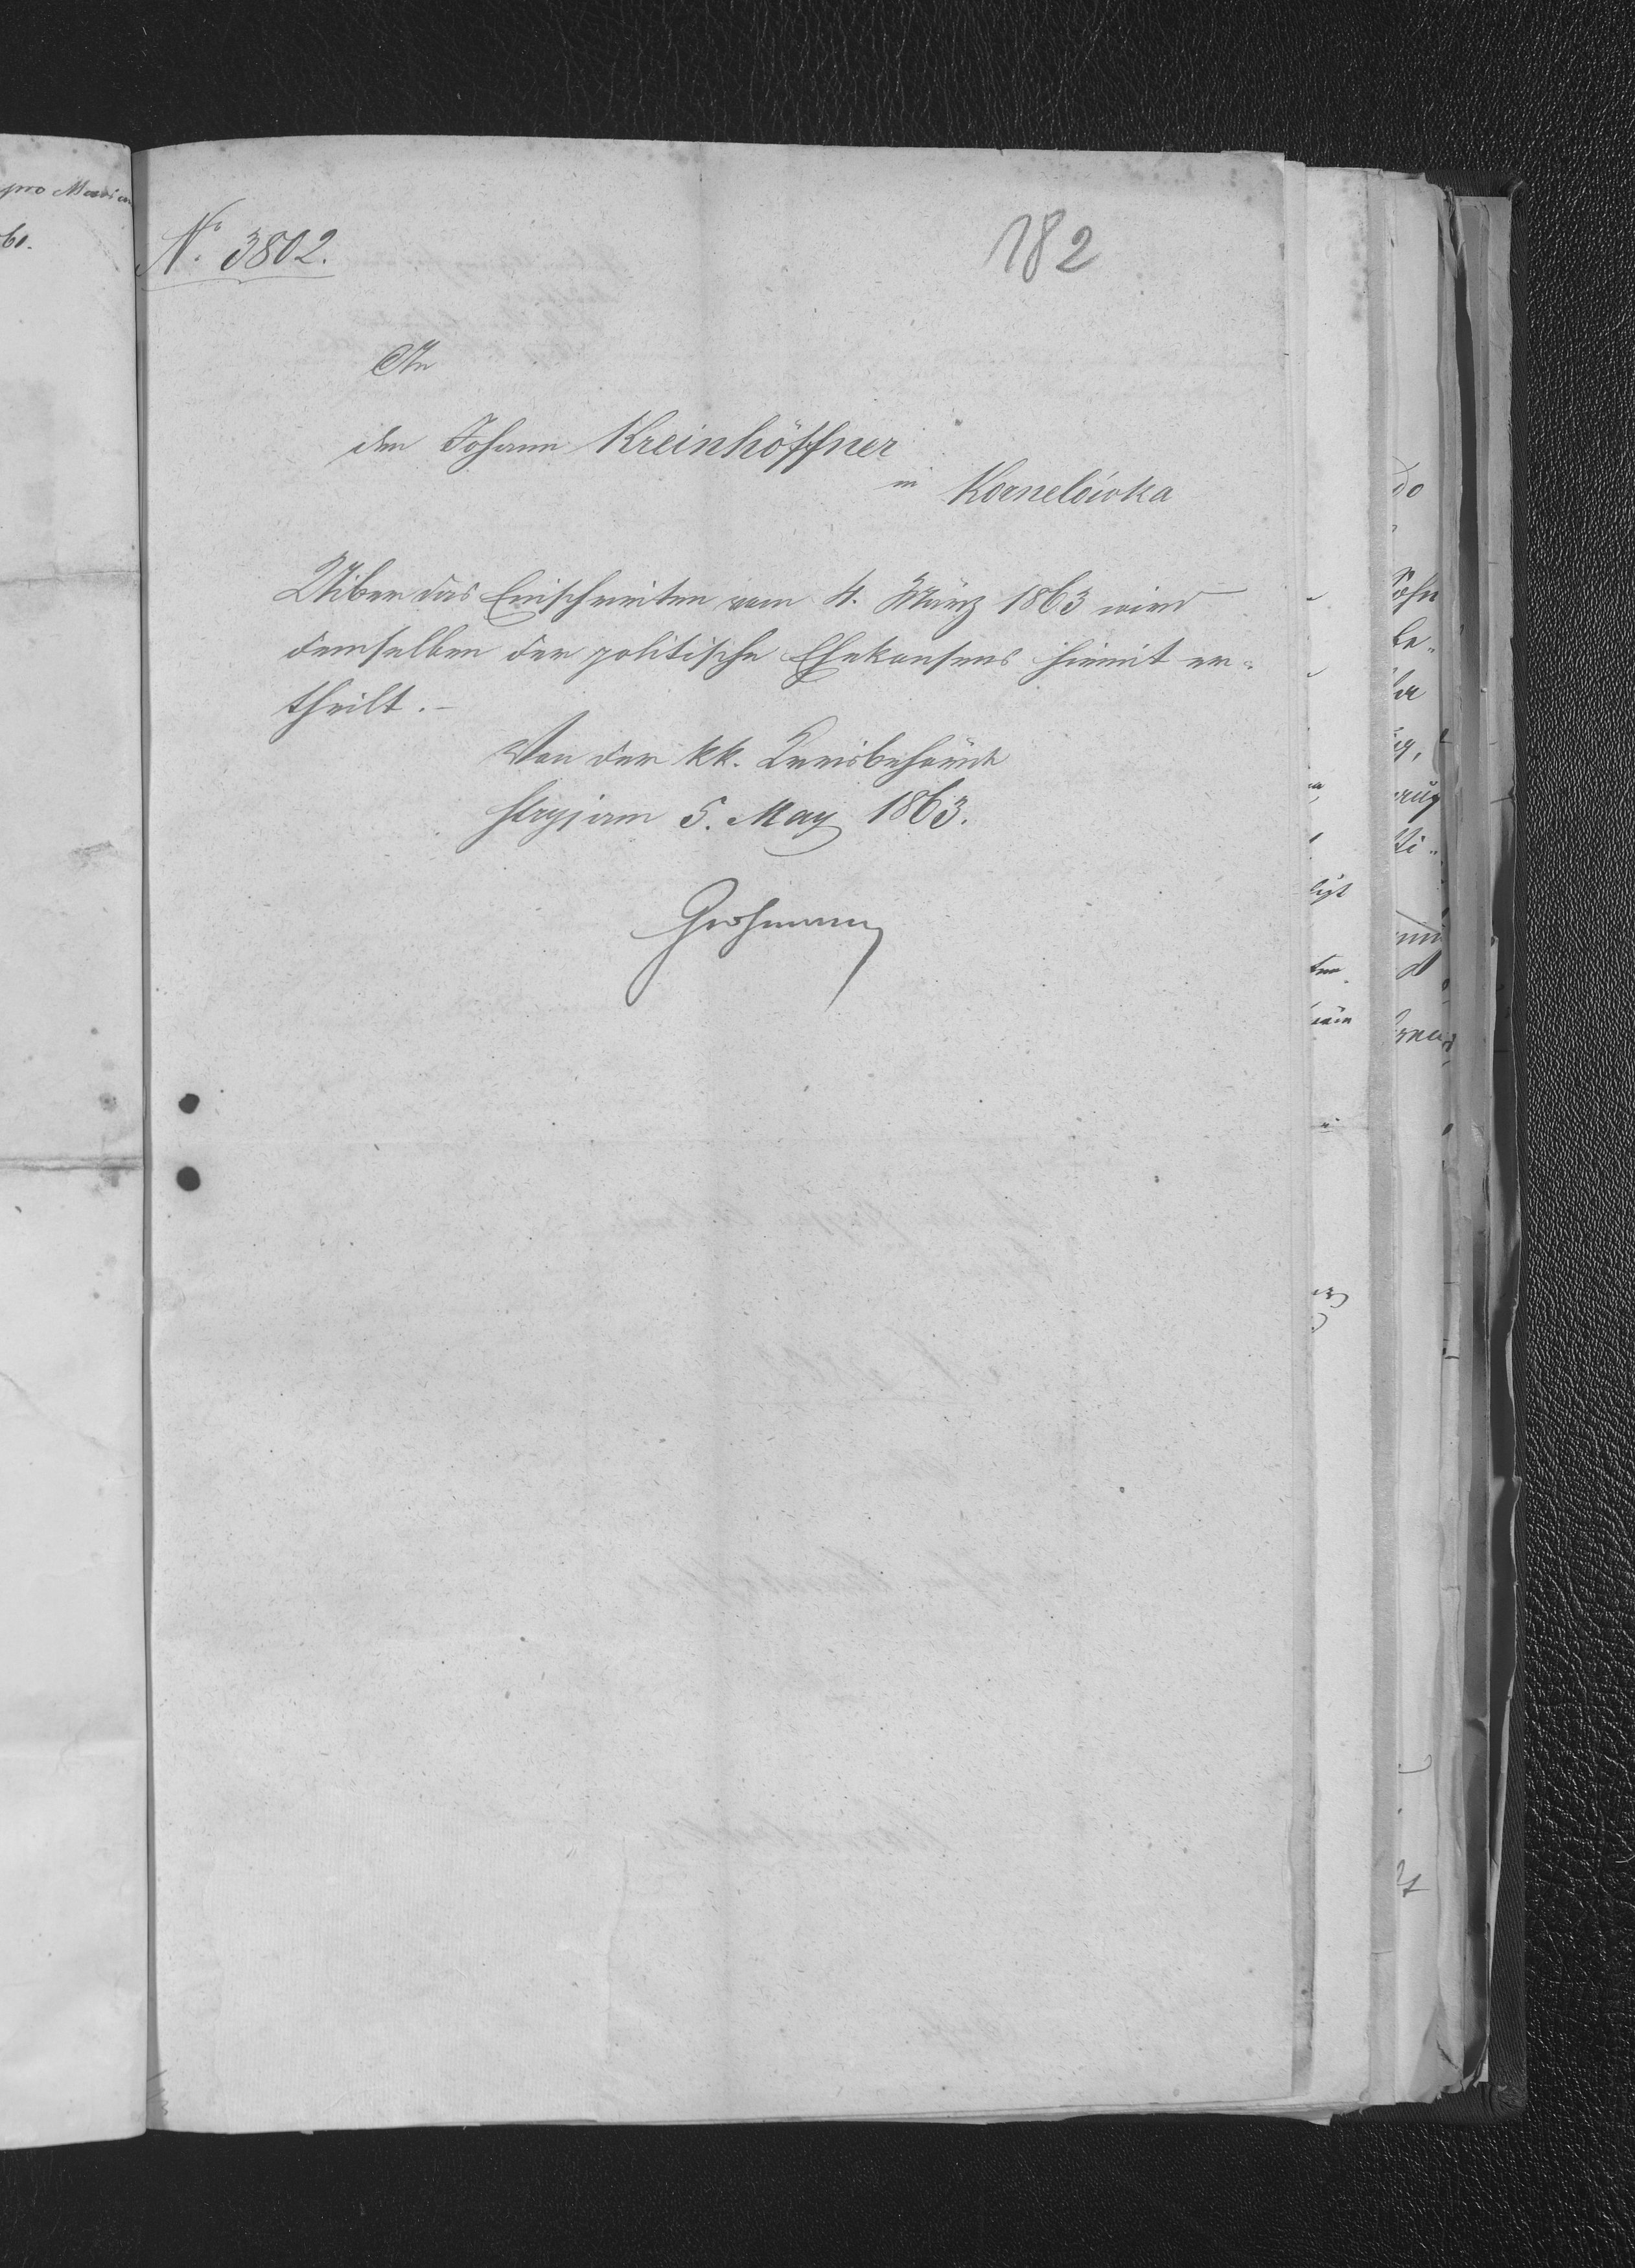 pro Marian
61.
N° 3802.
182
An
den Johann Kreinhöffner
in Kornelówka
Uiber das Einschreiten vom 4. März 1863 wird
demselben der politische Ehekonsens hiemit er-
theilt.–
Von der kk. Kreisbehörde
Stryj am 5. May 1863.